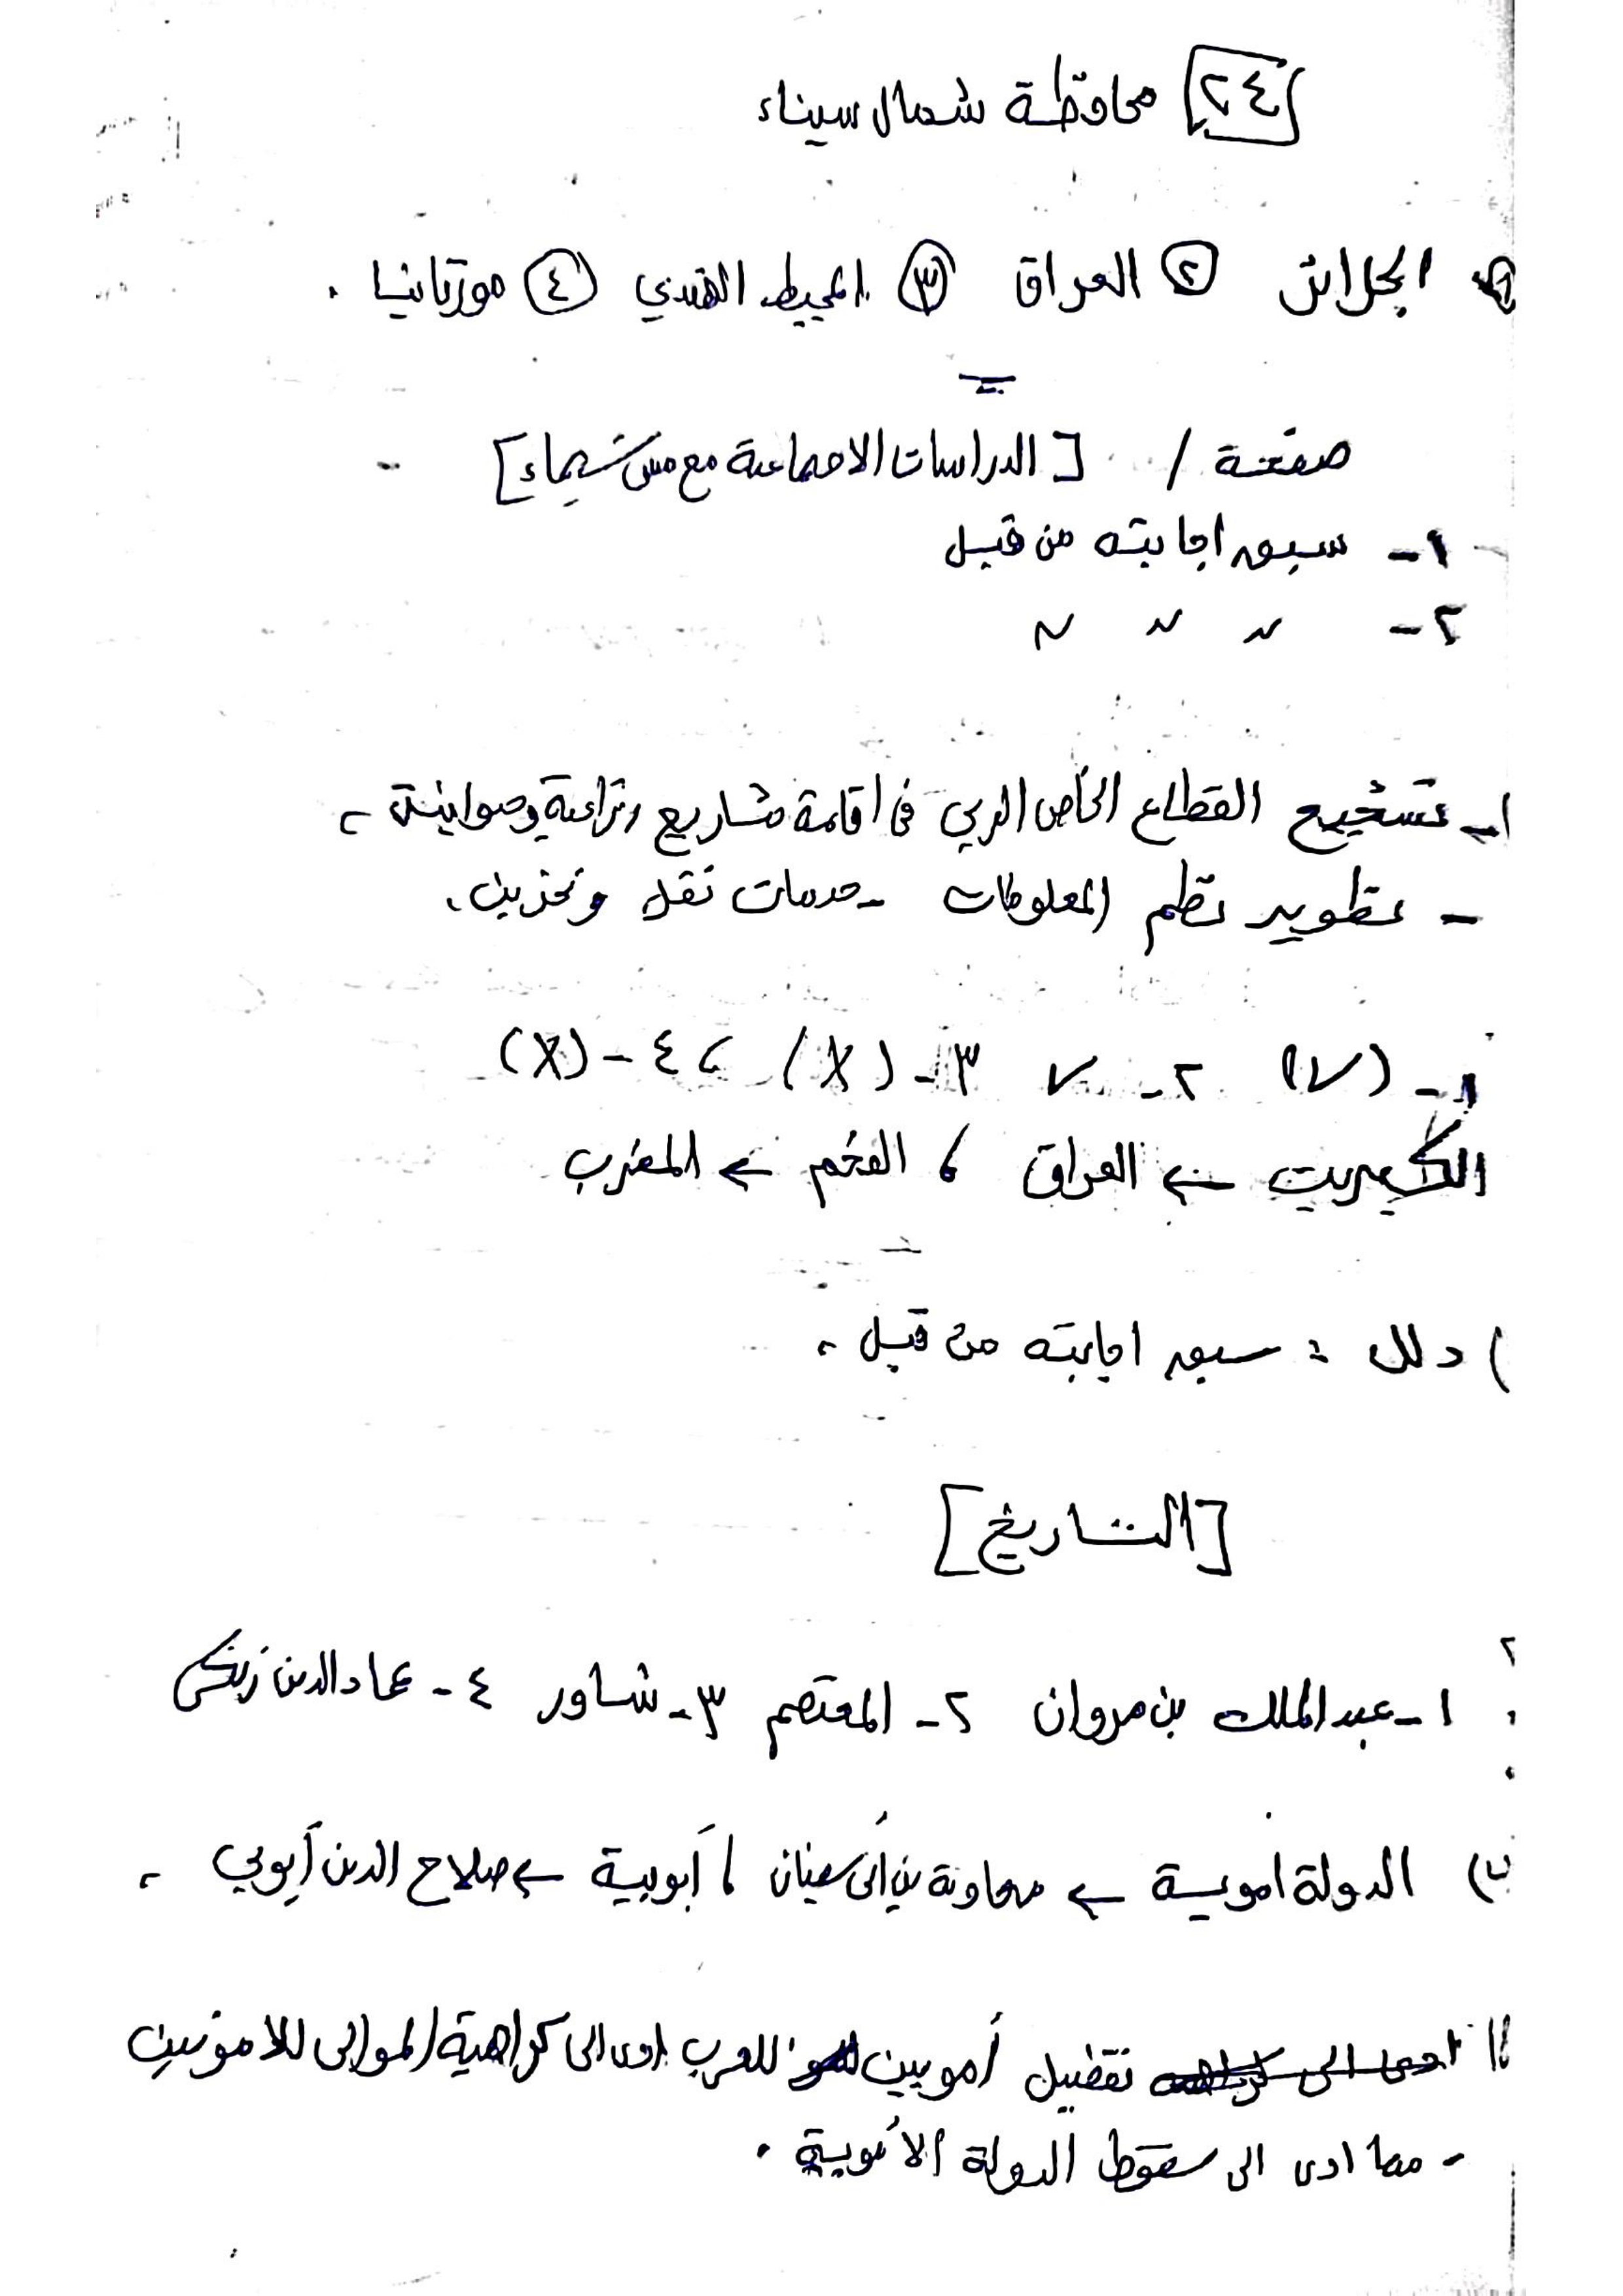 [٢٤] محافظة شمال سيناء
① الجزائر ② العراق ③ المحيط الهندي ④ موريتانيا .
صفحة / [الدراسات الاجتماعية مع مس شيماء]
١- سبق اجابته من قبل
٢- 〃 〃 〃
١- تشجيع القطاع الخاص العربي فى اقامة مشاريع زراعية وحيوانية ،
- تطوير نظم المعلومات - خدمات نقل وتخزين .
١- (✓) ٢- ✓ ٣- (X) ، ٤- (X)
الكبريت ← العراق ، الفحم ← المغرب
) دلل : سبق اجابته من قبل .
[التاريخ]
١- عبد الملك بن مروان ٢- المعتصم ٣- شاور ٤- عماد الدين زنكى
ب) الدولة اموية ← معاوية بن أبى سفيان ، أيوبية ← صلاح الدين أيوبي .
تفضيل أمويين للعرب ادى الى كراهية الموالى للامويين
- مما ادى الى سقوط الدولة الأموية .